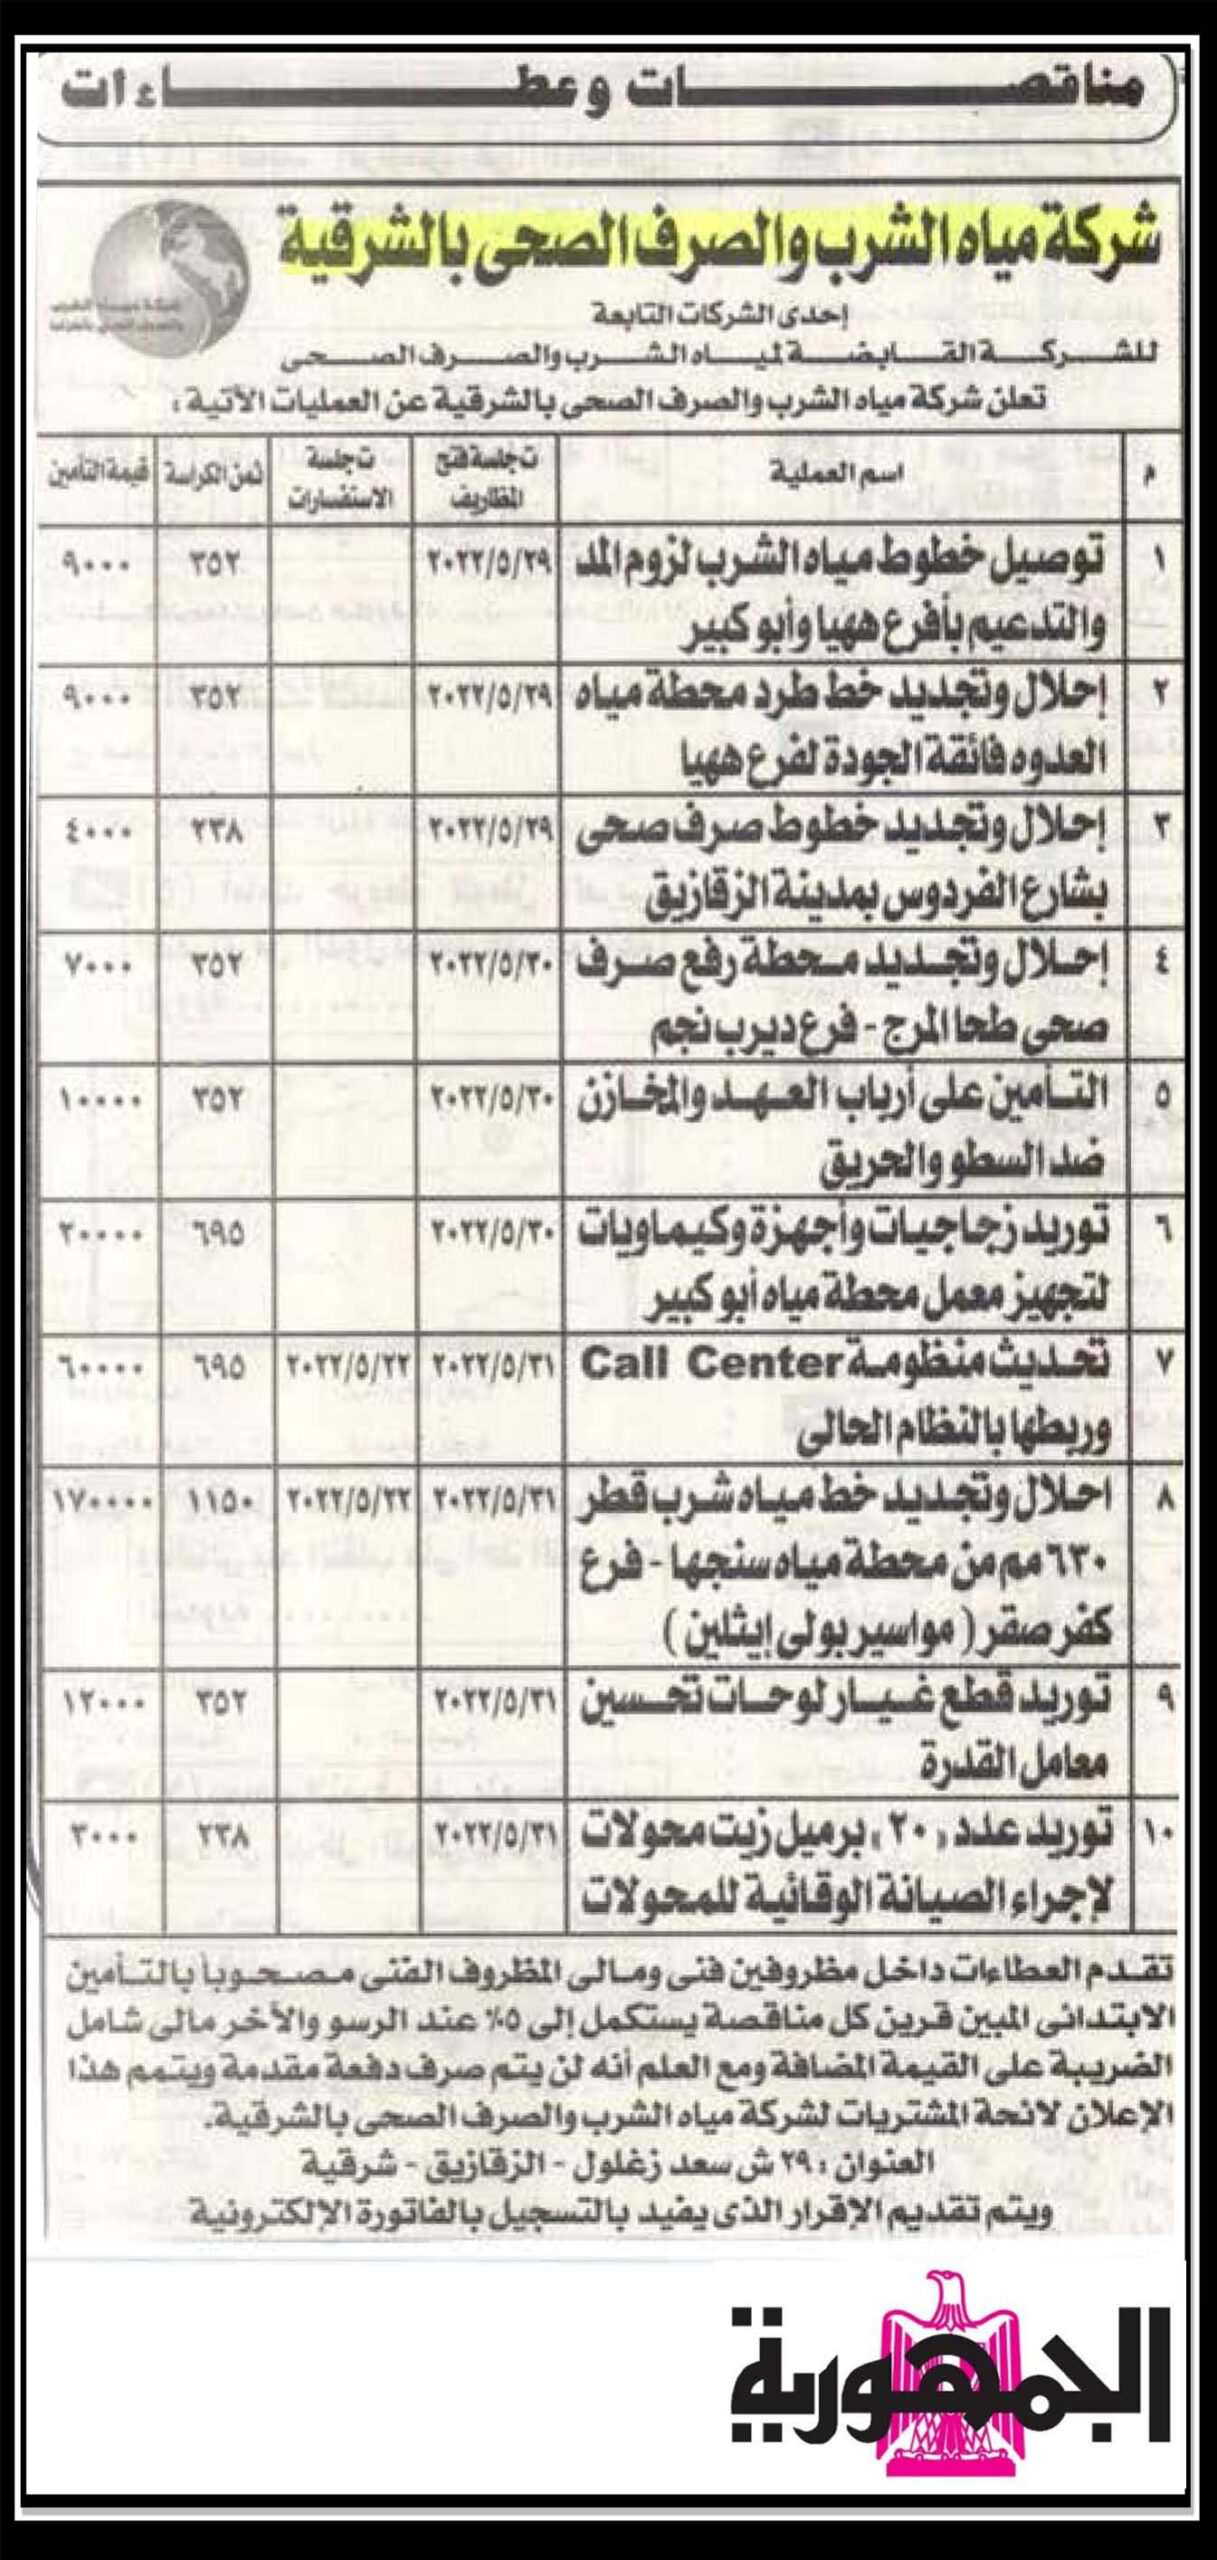 مناقصات وعطاءات
شركة مياه الشرب والصرف الصحى بالشرقية
إحدى الشركات التابعة
للشركة القابضة لمياه الشرب والصرف الصحى
تعلن شركة مياه الشرب والصرف الصحى بالشرقية عن العمليات الآتية :
م | اسم العملية | ت جلسة فتح المظاريف | ت جلسة الاستفسارات | ثمن الكراسة | قيمة التأمين
١ | توصيل خطوط مياه الشرب لزوم المد | ٢٠٢٢/٥/٢٩ | ٣٥٢ | ٩٠٠٠
والتدعيم بأفرع ههيا وأبو كبير
٢ | إحلال وتجديد خط طرد محطة مياه | ٢٠٢٢/٥/٢٩ | ٣٥٢ | ٩٠٠٠
العدوه فائقة الجودة لفرع ههيا
٣ | إحلال وتجديد خطوط صرف صحى | ٢٠٢٢/٥/٢٩ | ٢٣٨ | ٤٠٠٠
بشارع الفردوس بمدينة الزقازيق
٤ | إحلال وتجديد محطة رفع صرف | ٢٠٢٢/٥/٣٠ | ٣٥٢ | ٧٠٠٠
صحى طحا المرج - فرع ديرب نجم
٥ | التأمين على أرباب العهد والمخازن | ٢٠٢٢/٥/٣٠ | ٣٥٢ | ١٠٠٠٠
ضد السطو والحريق
٦ | توريد زجاجيات وأجهزة وكيماويات | ٢٠٢٢/٥/٣٠ | ٦٩٥ | ٢٠٠٠٠
لتجهيز معمل محطة مياه أبو كبير
٧ | تحديث منظومة Call Center | ٢٠٢٢/٥/٣١ | ٢٠٢٢/٥/٢٢ | ٦٩٥ | ٦٠٠٠٠
وربطها بالنظام الحالى
٨ | احلال وتجديد خط مياه شرب قطر | ٢٠٢٢/٥/٣١ | ٢٠٢٢/٥/٢٢ | ١١٥٠ | ١٧٠٠٠٠
٦٣٠ مم من محطة مياه سنجها - فرع
كفر صقر ( مواسير بولى إيثلين )
٩ | توريد قطع غيار لوحات تحسين | ٢٠٢٢/٥/٣١ | ٣٥٢ | ١٢٠٠٠
معامل القدرة
١٠ | توريد عدد «٢٠» برميل زيت محولات | ٢٠٢٢/٥/٣١ | ٢٣٨ | ٣٠٠٠
لإجراء الصيانة الوقائية للمحولات
تقدم العطاءات داخل مظروفين فنى ومالى المظروف الفنى مصحوباً بالتأمين
الابتدائى المبين قرين كل مناقصة يستكمل إلى ٥٪ عند الرسو والأخر مالى شامل
الضريبة على القيمة المضافة ومع العلم أنه لن يتم صرف دفعة مقدمة ويتمم هذا
الإعلان لائحة المشتريات لشركة مياه الشرب والصرف الصحى بالشرقية.
العنوان : ٢٩ ش سعد زغلول - الزقازيق - شرقية
ويتم تقديم الإقرار الذى يفيد بالتسجيل بالفاتورة الإلكترونية
الجمهورية